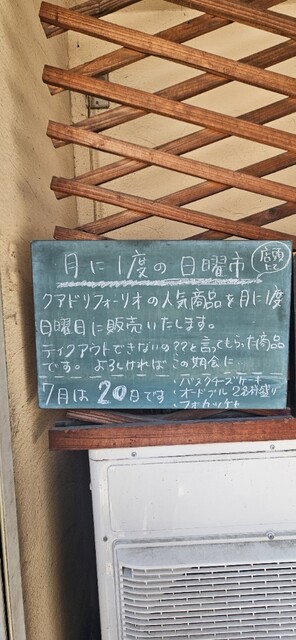 月に1度の日曜市 店頭にて
クアドリフォーリオの人気商品を月に1度
日曜日に販売いたします。
テイクアウトできないの??と言ってもらった商品
です。よろしければこの機会に
7月は20日です
・バスクチーズケーキ
・オードブル2名枠盛り
・フォカッチャ